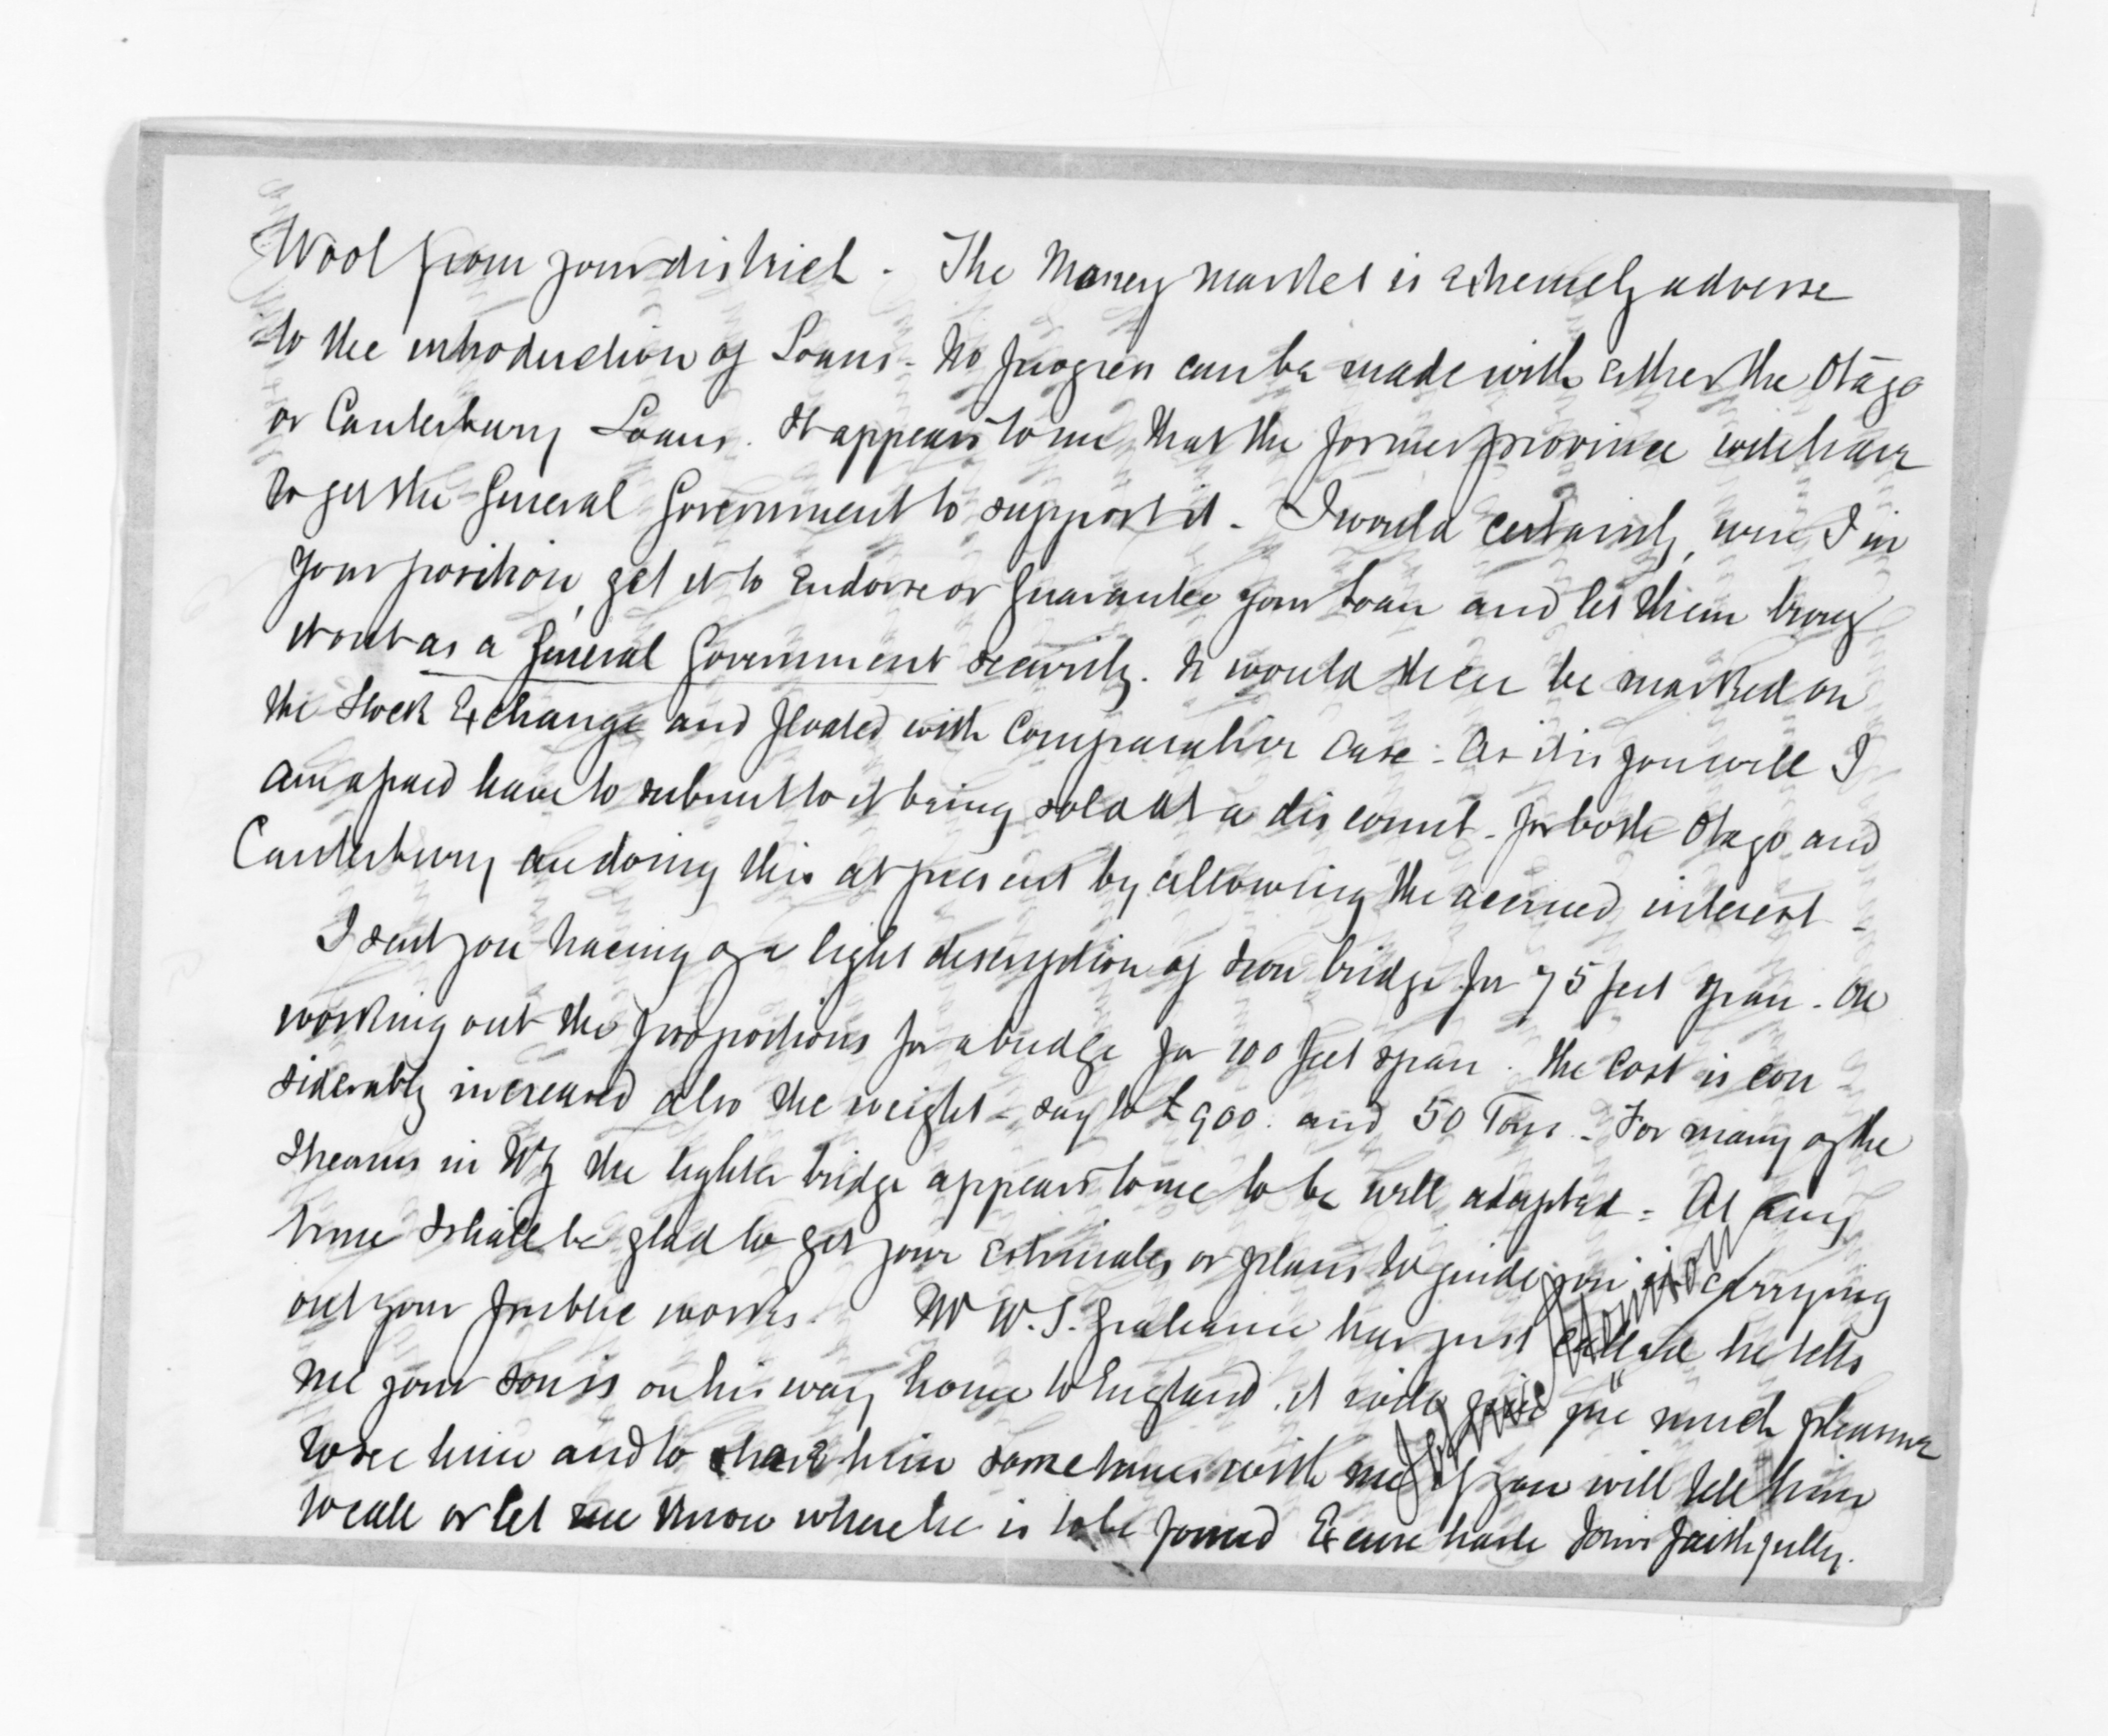 Wool from your district - The Money market is extremely adverse
to the introduction of Loans - No progress can be made with either the Otago
or Canterbury Loans. It appears to me that the former province will have
to get the General Government to support it - I would certainly, were I in
your position, get it to Endorse or Guarantee your Loan and let them bring
it out as a General Government security. It would then be marked on
the Stock Exchange and floated with Comparative Ease - As it is you will I
am afraid have to submit to it being sold at a discount - for both Otago and
Canterbury are doing this at present by allowing the accrued interest -
I sent you tracing of a light description of Iron bridge for 75 feet span - On
working out the proportions for a bridge for 100 feet span. The Cost is con
siderably increased also the weight - say to £900. and 50 Tons - For many of the
Streams in the lighter bridge appears to me to be well adapted - At any
time I shall be glad to get your estimates or plans to guide you in carrying
out your public works. Mr W. S. Grahame has just called he tells
me your son is on his way home to England, it will give me much pleasure
to see him and to have him sometimes with me if you will tell him
to call or let me know where he is to be found Excuse haste Yours faithfully.
Morrison